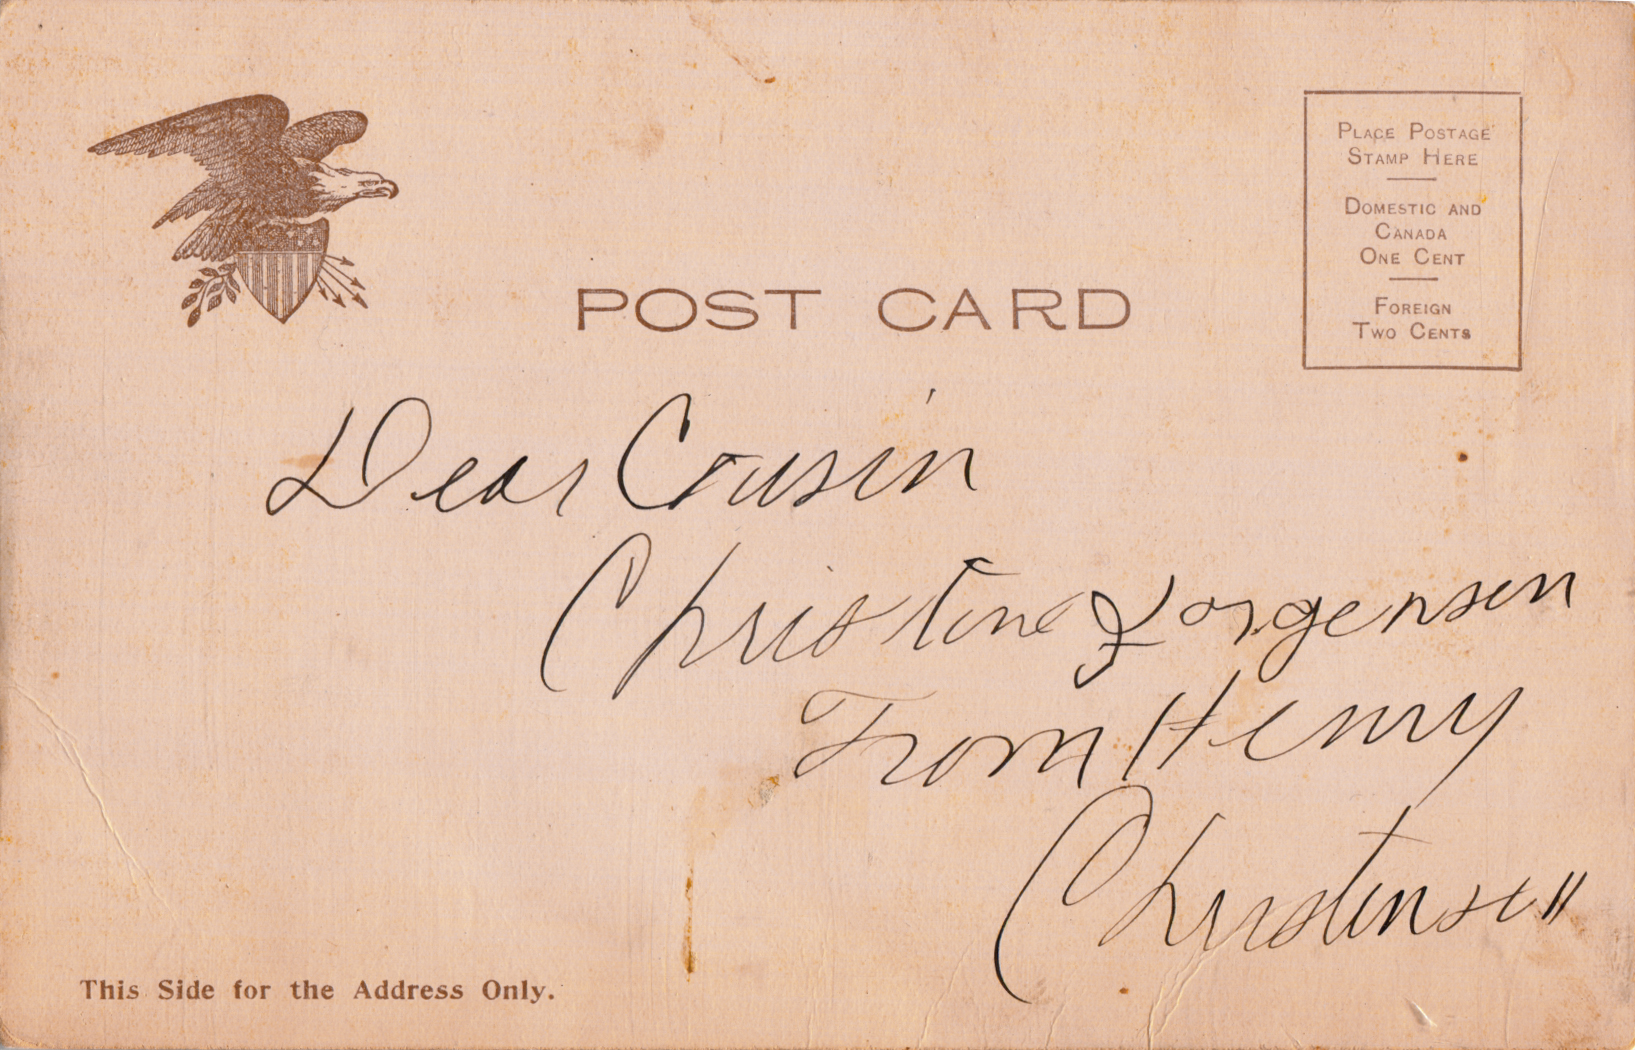 PLACE POSTAGE
STAMP HERE
DOMESTIC AND
CANADA
ONE CENT
FOREIGN
TWO CENTS
POST CARD
Dear Cousin
Christine Jorgensen
From Henry
Christensen
This Side for the Address Only.